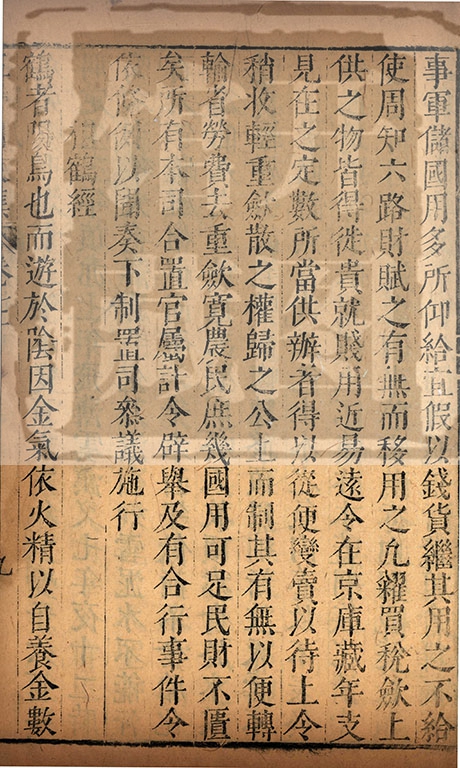 事軍儲國用多所仰給宜假以錢貨繼其用之不給
使周知六路財賦之有無而移用之凡糴買稅歛上
供之物皆得徙貴就賤用近易遠令在京庫藏年支
見在之定數所當供辦者得以從便變賣以待上令
稍收輕重歛散之權歸之公上而制其有無以便轉
輸者勞費去重歛寬農民庶幾國用可足民財不匱
矣所有本司合置官屬計令辟舉及有合行事件令
依條例以聞奏下制置司叅議施行
鶴經
鶴者陽鳥也而遊於陰因金氣依火精以自養金數
九